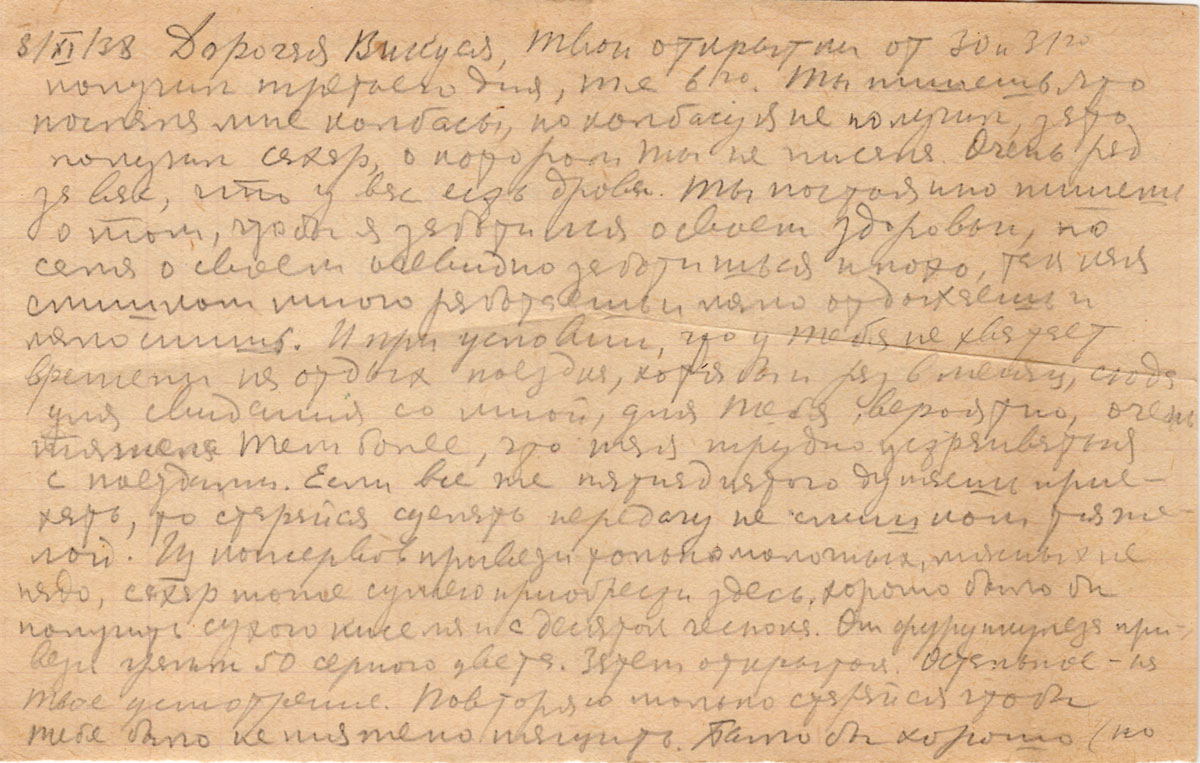 8/XI/38 Дорогая Викуся, твои открытки от 30 и 31го
получил третьего дня, т.е 6го. Ты пишешь что
послала мне колбасы, но колбасу я не получил, зато
получил сахар, о котором ты не писала. Очень рад
за вас, что у вас есть дрова. Ты постоянно пишешь
о том, чтобы я заботился о своем здоровьи, но
сама о своем очевидно заботишься плохо, так как
слишком много работаешь и мало отдыхаешь и
мало спишь. И при условии, что у тебя не хватает
времени на отдых поездка, хотя бы и раз в месяц, сюда
для свидания со мной, для тебя, вероятно, очень
тяжела тем более, что там трудно устраиваться
с поездами. Если все же пятнадцатого думаешь прие-
хать, то старайся сделать передачу не слишком тяже-
лой. Из консервов привези только молочных, мясных не
надо, сахар тоже сумею приобрести здесь, хорошо было бы
получить сухого киселя и с десяток чеснока. От фурункулеза при-
вези грамм 50 серного цвета. Затем открыток. Остальное – на
твое усмотрение. Повторяю только старайся чтобы
тебе было не тяжело тащить. Было бы хорошо (но